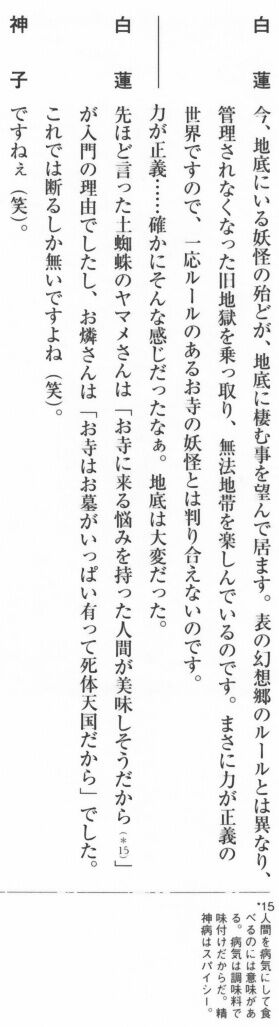 白蓮　今、地底にいる妖怪の殆どが、地底に棲む事を望んで居ます。表の幻想郷のルールとは異なり、
管理されなくなった旧地獄を乗っ取り、無法地帯を楽しんでいるのです。まさに力が正義の
世界ですので、一応ルールのあるお寺の妖怪とは判り合えないのです。
――力が正義……確かにそんな感じだったなぁ。地底は大変だった。
白蓮　先ほど言った土蜘蛛のヤマメさんは「お寺に来る悩みを持った人間が美味しそうだから（*15）」
が入門の理由でしたし、お燐さんは「お寺はお墓がいっぱい有って死体天国だから」でした。
これでは断るしか無いですよね（笑）。
神子　ですねぇ（笑）。
*15
人間を病気にして食
べるのには意味があ
る。病気は調味料で
味付けだからだ。精
神病はスパイシー。